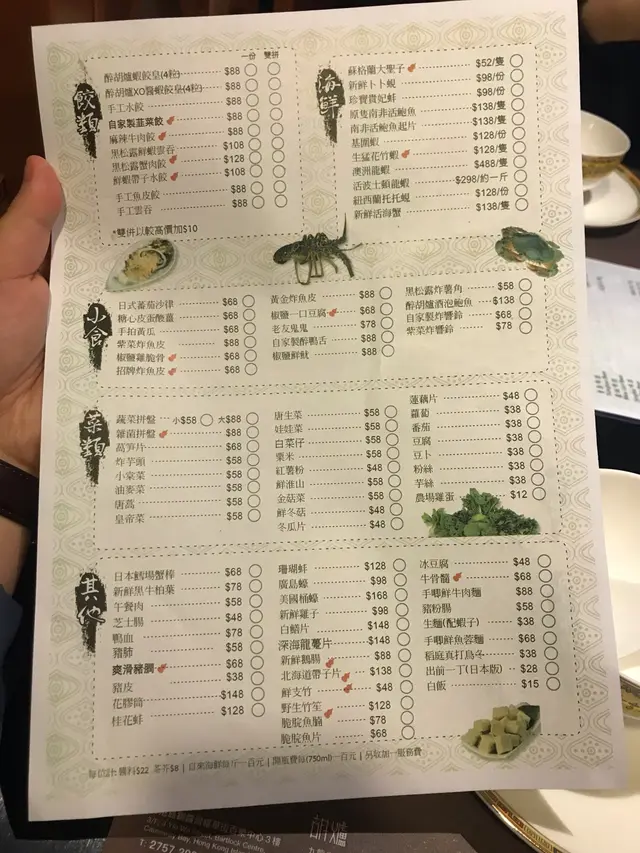 一份 雙拼
餃類
醉胡爐蝦餃皇(4粒) $88
醉胡爐XO醬蝦餃皇(4粒) $88
手工水餃 $88
自家製韮菜餃 $88
麻辣牛肉餃 $88
黑松露鮮蝦雲吞 $108
黑松露蟹肉餃 $128
鮮蝦帶子水餃 $108
手工魚皮餃 $88
手工雲吞 $88
*雙併以較高價加$10
海鮮
蘇格蘭大聖子 $52/隻
新鮮卜卜蜆 $98/份
珍寶貴妃蚌 $98/份
原隻南非活鮑魚 $138/隻
南非活鮑魚起片 $138/隻
基圍蝦 $128/份
生猛花竹蝦 $128/隻
澳洲龍蝦 $488/隻
活波士頓龍蝦 $298/約一斤
紐西蘭托托蜆 $128/份
新鮮活海蟹 $138/隻
小食
日式蕃茄沙律 $68
糖心皮蛋酸薑 $68
手拍黃瓜 $68
紫菜炸魚皮 $88
椒鹽雞脆骨 $68
招牌炸魚皮 $68
黃金炸魚皮 $88
椒鹽一口豆腐 $68
老友鬼鬼 $78
自家製醉鴨舌 $88
椒鹽鮮魷 $88
黑松露炸薯角 $58
醉胡爐酒泡鮑魚 $138
自家製炸響鈴 $68
紫菜炸響鈴 $78
菜類
蔬菜拼盤 小$58 大$88
雜菌拼盤 $88
萵筍片 $68
炸芋頭 $58
小棠菜 $58
油麥菜 $58
唐蒿 $58
皇帝菜 $58
唐生菜 $58
娃娃菜 $58
白菜仔 $58
粟米 $58
紅薯粉 $48
鮮淮山 $58
金菇菜 $58
鮮冬菇 $48
冬瓜片 $48
蓮藕片 $48
蘿蔔 $38
番茄 $38
豆腐 $38
豆卜 $38
粉絲 $38
芋絲 $38
農場雞蛋 $12
其他
日本鱈場蟹棒 $68
新鮮黑牛柏葉 $78
午餐肉 $58
芝士腸 $48
鴨血 $78
豬肺 $58
爽滑豬膶 $68
豬皮 $38
花膠筒 $148
桂花蚌 $128
珊瑚蚌 $128
廣島蠔 $98
美國桶蠔 $168
新鮮雞子 $98
白鱔片 $148
深海龍躉片 $148
新鮮鵝腸 $88
北海道帶子片 $138
鮮支竹 $48
野生竹笙 $128
脆脘魚腩 $78
脆脘魚片 $68
冰豆腐 $48
牛骨髓 $68
手唧鮮牛肉麵 $88
豬粉腸 $58
生麵(配蝦子) $38
手唧鮮魚蓉麵 $68
稻庭真打烏冬 $38
出前一丁(日本版) $28
白飯 $15
每位計: 醬料$22 茶芥$8 | 自來海鮮每斤一百元 | 開瓶費每(750ml)一百元 | 另收加一服務費